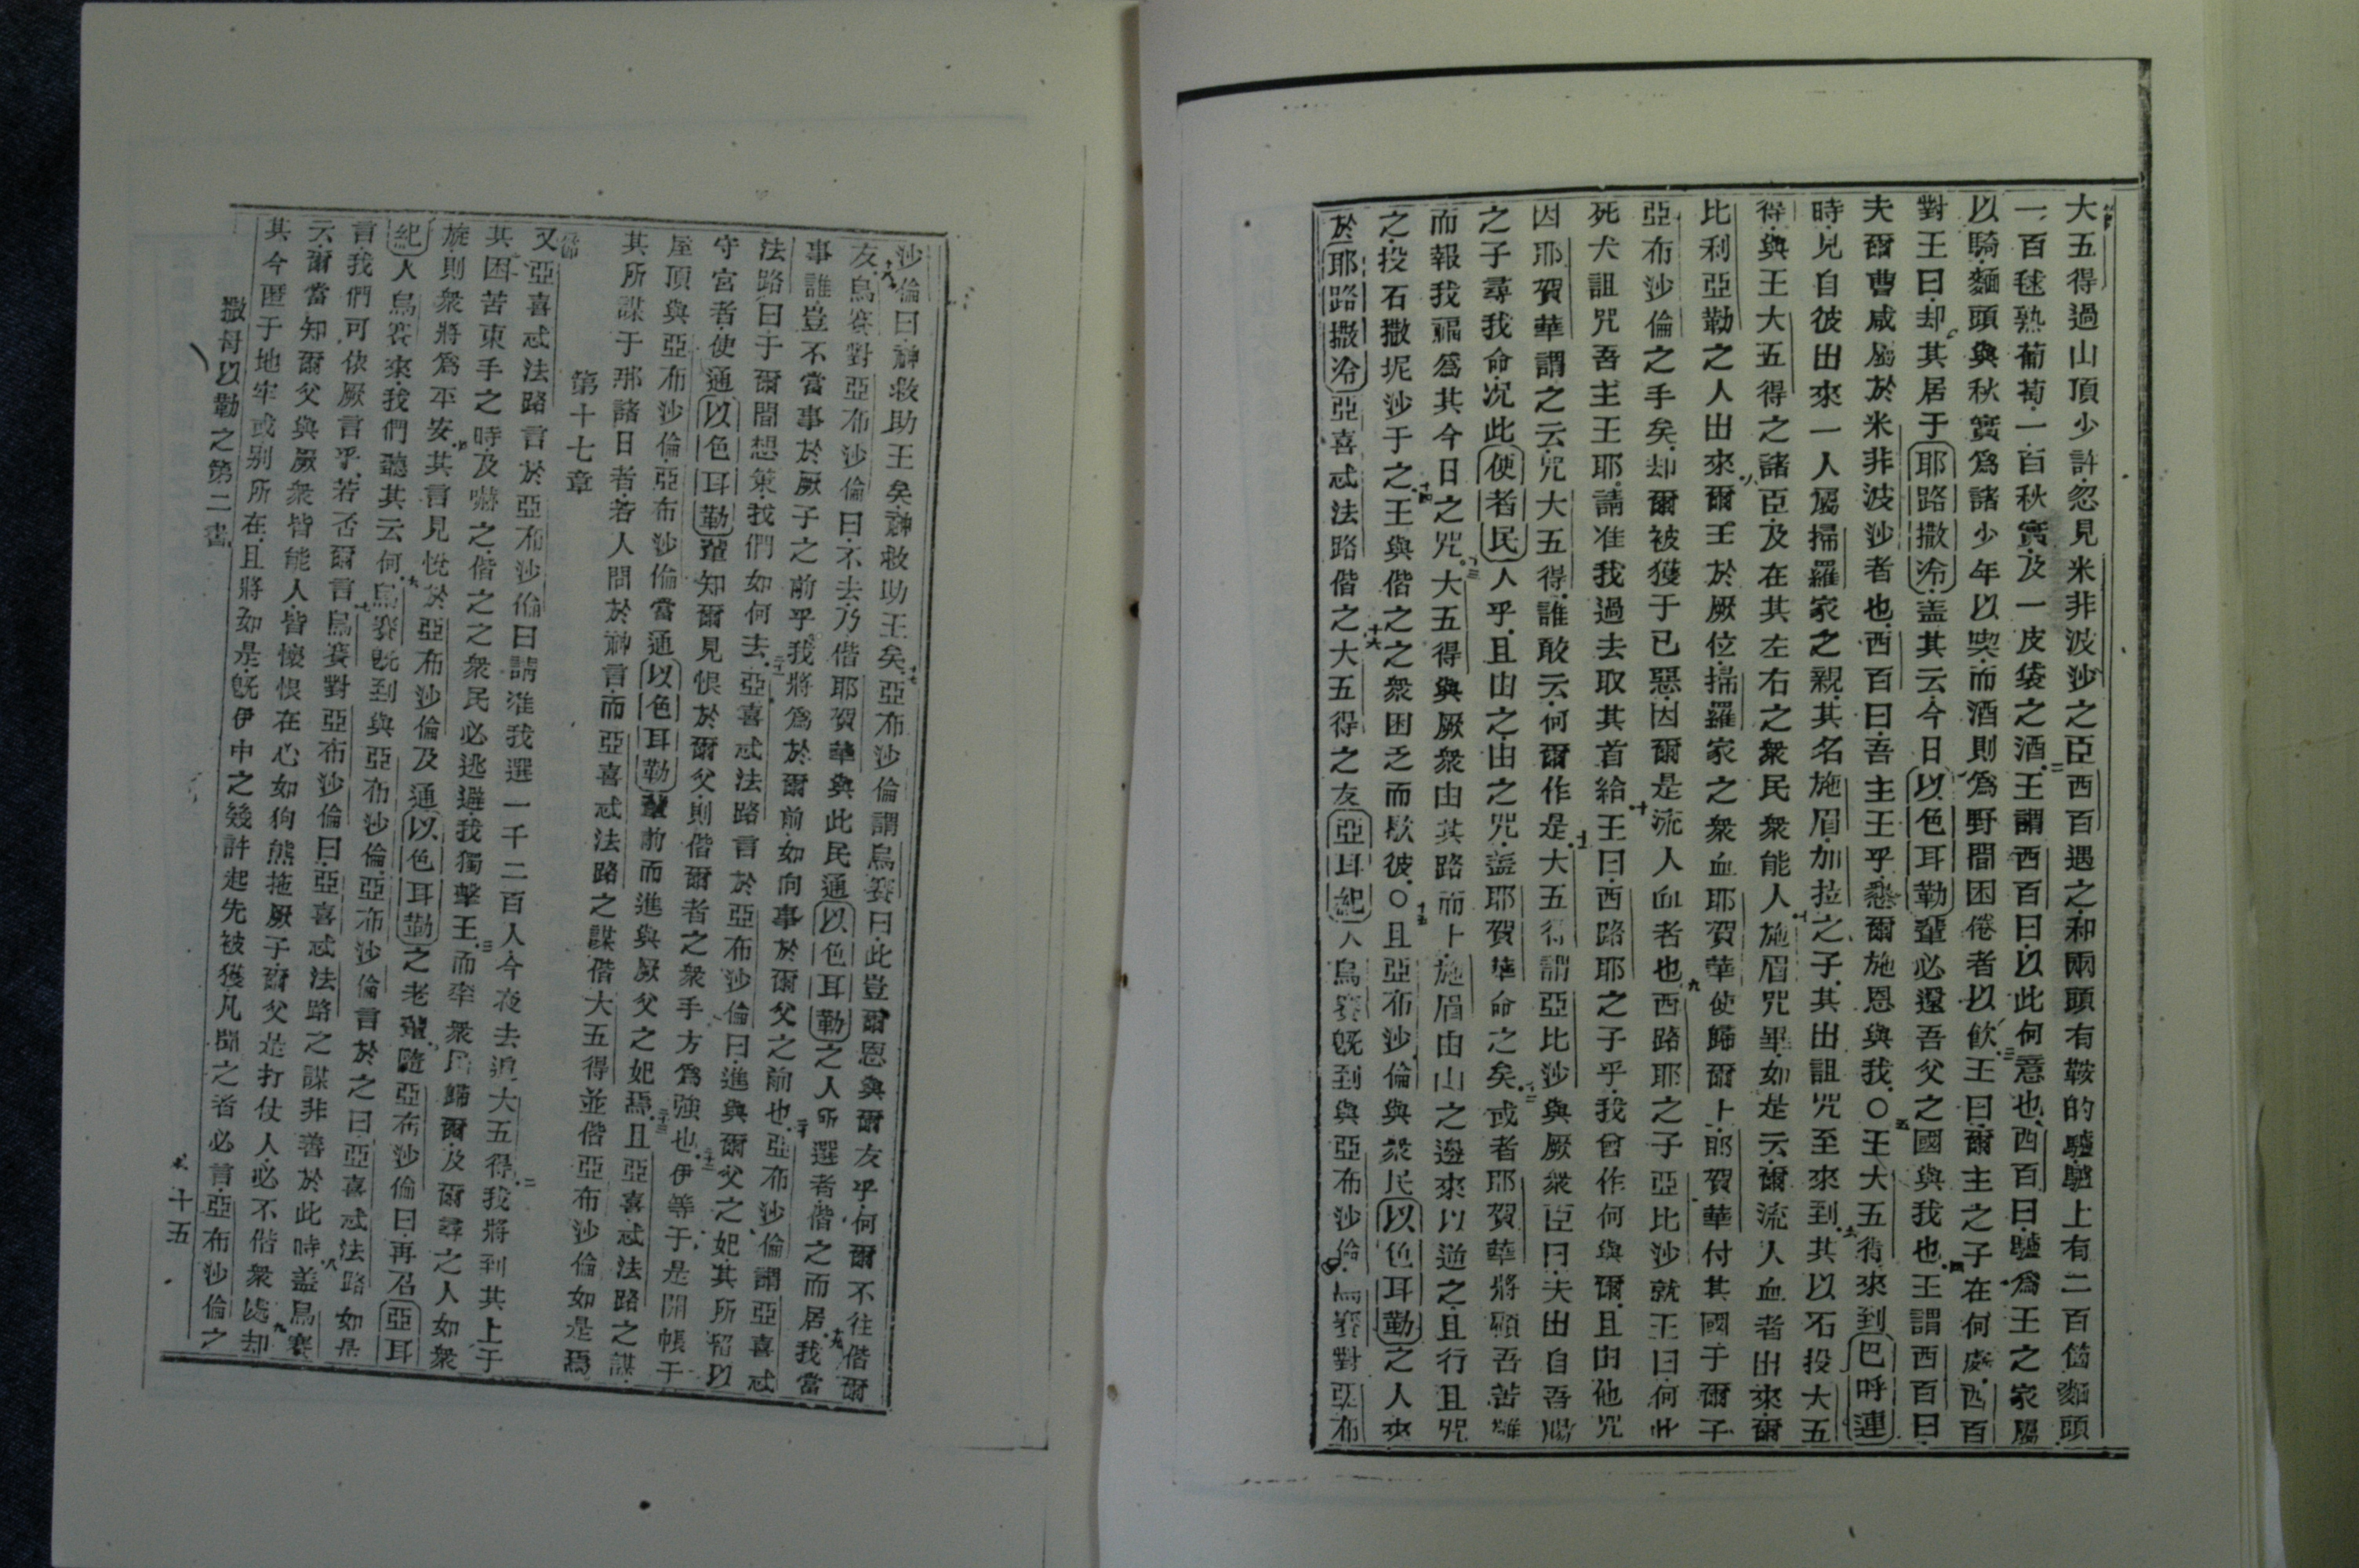 大五得過山頂少許忽見米非波沙之臣西百遇之和兩頭有鞍的驢驢上有二百箇麵頭
一百毬熟葡萄一百秋實及一皮袋之酒二王謂西百曰以此何意也西百曰驢爲王之家屬
以騎麵頭與秋實爲諸少年以喫而酒則爲野間困倦者以飲三王曰爾主之子在何處西百
對王曰却其居于耶路撒冷盖其云今日以色耳勒輩必還吾父之國與我也四王謂西百曰
夫爾曹咸屬於米非波沙者也西百曰吾主王乎懇爾施恩與我〇五王大五得來到巴呼連
時見自彼出來一人屬掃羅家之親其名施眉加拉之子其出詛咒至來到六其以石投大五
得與王大五得之諸臣及在其左右之衆民衆能人七施眉咒畢如是云爾流人血者出來爾
比利亞勒之人出來八爾王於厥位掃羅家之衆血耶賀華使歸爾上耶賀華付其國于爾子
亞布沙倫之手矣却爾被獲于已惡因爾是流人血者也九西路耶之子亞比沙就王曰何此
死犬詛咒吾主王耶請准我過去取其首給十王曰西路耶之子乎我曾作何與爾且由他咒
因耶賀華謂之云咒大五得誰敢云何爾作是十一大五得謂亞比沙與厥衆臣曰夫出自吾腸
之子尋我命况此便者民人乎且由之由之咒盖耶賀華命之矣十二或者耶賀華將顧吾苦難
而報我福爲其今日之咒十三大五得與厥衆由其路而上施眉由山之邊來以逆之且行且咒
之投石撒坭沙于之十四王與偕之之衆困乏而歇彼〇十五且亞布沙倫與衆民以色耳勒之人來
於耶路撒冷亞喜忒法路偕之十六大五得之友亞耳紀人烏賽旣到與亞布沙倫烏賽對亞布
沙倫曰神救助王矣神救助王矣十七亞布沙倫謂烏賽曰此豈爾恩與爾友乎何爾不往偕爾
友十八烏賽對亞布沙倫曰不去乃偕耶賀華與此民通以色耳勒之人所選者偕之而居十九我當
事誰豈不當事於厥子之前乎我將爲於爾前如向事於爾父之前也二十亞布沙倫謂亞喜忒
法路曰于爾間想策我們如何去二十一亞喜忒法路言於亞布沙倫曰進與爾父之妃其所留以
守宮者使通以色耳勒輩知爾見恨於爾父則偕爾者之衆手方爲強也二十二伊等于是開帳于
屋頂與亞布沙倫亞布沙倫當通以色耳勒輩前而進與厥父之妃焉二十三且亞喜忒法路之謀
其所謀于那諸日者若人問於神言而亞喜忒法路之謀偕大五得並偕亞布沙倫如是焉
第十七章
一節又亞喜忒法路言於亞布沙倫曰請准我選一千二百人今夜去追大五得二我將到其上于
其困苦東手之時及嚇之偕之之衆民必逃遯我獨擊王三而率衆民歸爾及爾尋之人如衆
旋則衆將爲平安四其言見悅於亞布沙倫及通以色耳勒之老輩五隨亞布沙倫曰再召亞耳
紀人烏賽來我們聽其云何六烏賽旣到與亞布沙倫亞布沙倫言於之曰亞喜忒法路如是
言我們可依厥言乎若否爾言七烏賽對亞布沙倫曰亞喜忒法路之謀非善於此時八盖烏賽
云爾當知爾父與厥衆皆能人皆懷恨在心如狗熊拖厥子爾父是打仗人必不偕衆處九却
其今匿于地牢或别所在且將如是旣伊中之幾許起先被獲凡聞之者必言亞布沙倫之
撒母以勒之第二書
十五